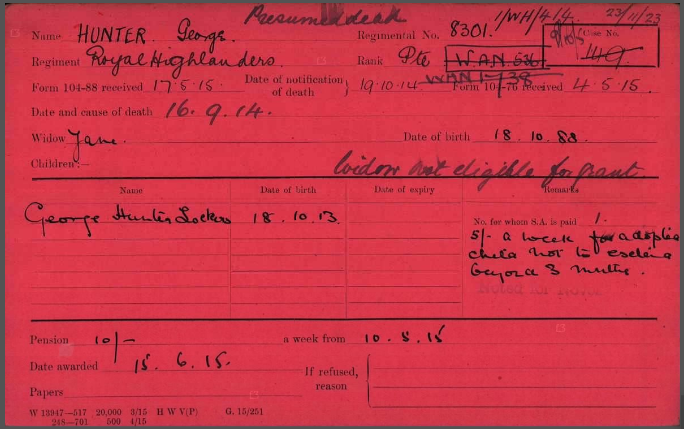 Presumed dead 1/WH/4/4. 23/11/23
Name HUNTER. George. Regimental No. 8301. Case No.
Regiment Royal Highlanders. Rank Pte W.A.N. 536
WAN 1-738
Form 104-88 received 17.5.15. Date of notification of death } 19.10.14 Form 104-76 received 4.5.15.
Date and cause of death 16.9.14.
Widow Jane. Date of birth 18.10.88.
Children:—
Widow not eligible for grant.
Name Date of birth Date of expiry Remarks
George Hunter 18.10.13.
No. for whom S.A. is paid 1.
5/- a week for adopted
child not to extend
beyond 3 months.
Pension 10/- a week from 10.5.15
Date awarded 15.6.15. If refused, reason
Papers
W 13947—517 20,000 3/15 H W V(P) G. 15/251
248—701 500 4/15